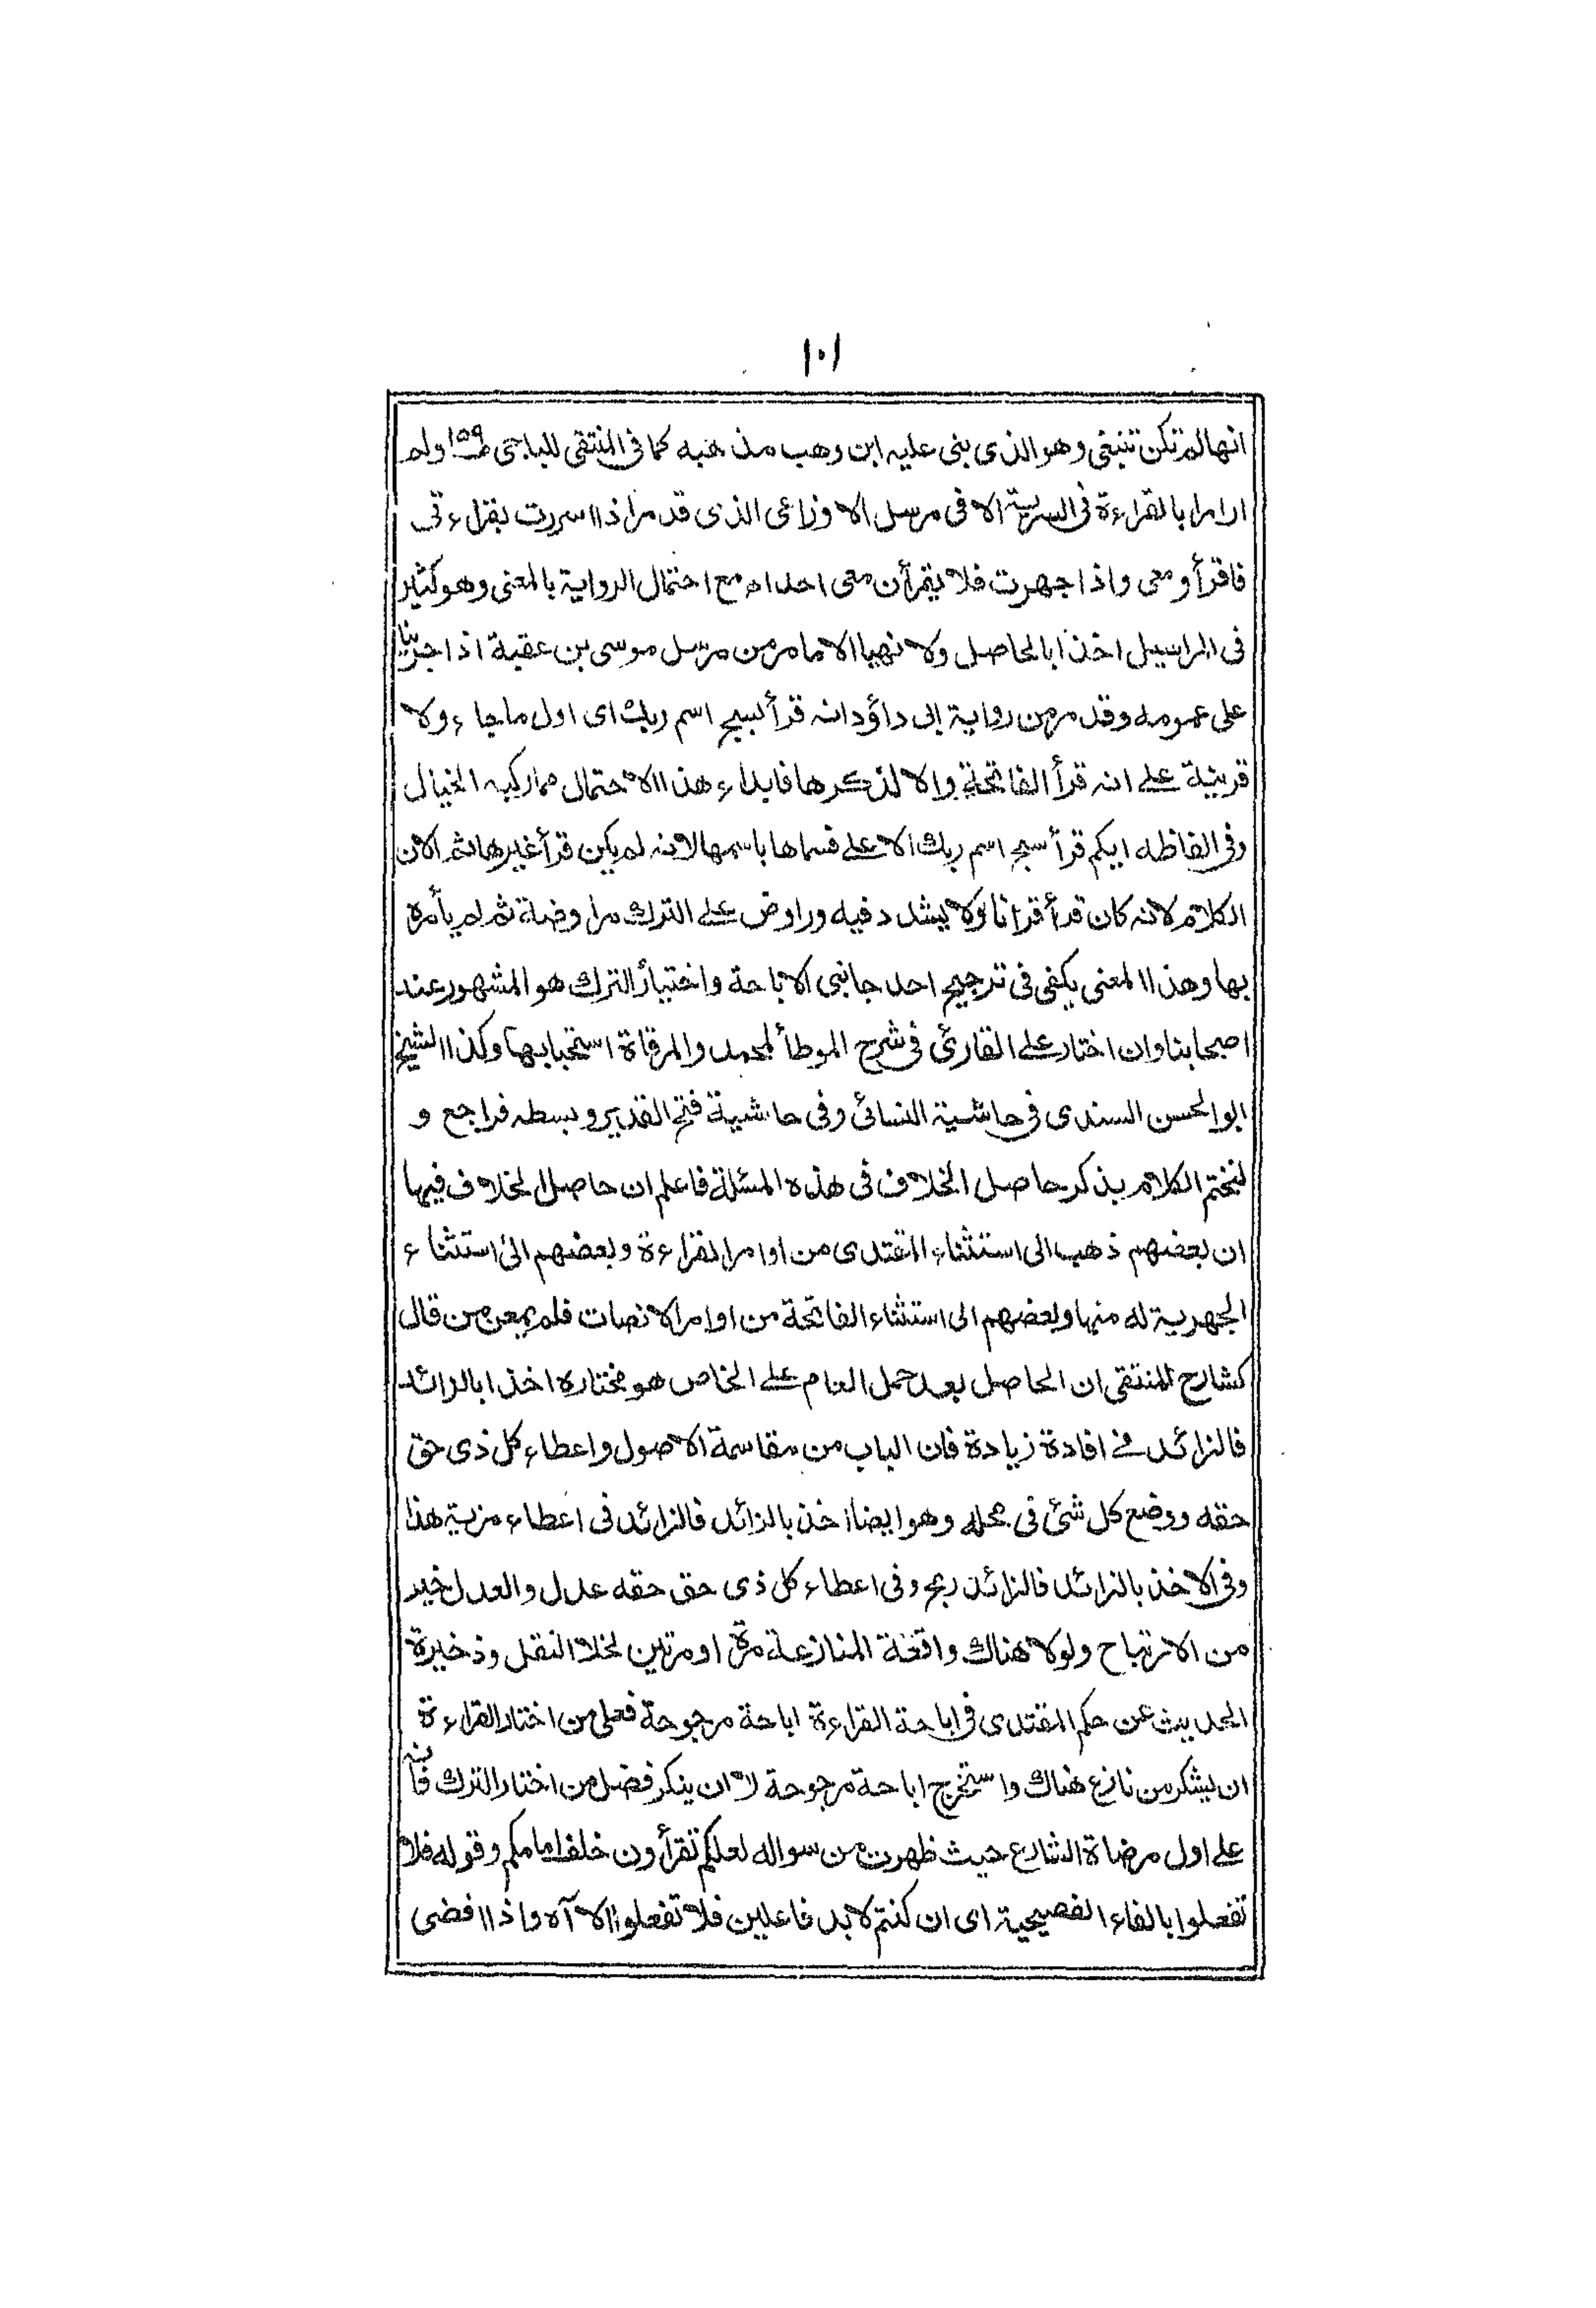 ١٠١
انها لم تكن تنبغى وهو الذى بنى عليه ابن وهب مذهبه كما فى المنتقى للباجى ص١٥٩ ولم
ار امرا بالقراءة فى السرية الا فى مرسل الاوزاعى الذى قد مر اذا اسررت بقراءتى
فاقرأوا معى واذا جهرت فلا يقرأن معى احد اه مع احتمال الرواية بالمعنى وهو كثير
فى المراسيل اخذا بالحاصل ولا نهيا الا مامر من مرسل موسى بن عقبة اذا اجرينا
على عمومه وقد مر من رواية ابى داؤد انه قرأ بسبح اسم ربك اى اول ما جاء ولا
قرينة على انه قرأ الفاتحة والا لذكرها فابداء هذا الاحتمال مما ركبه الخيال
وفى الفاظه ايكم قرأ سبح اسم ربك الاعلى فسماها باسمها لانه لم يكن قرأ غيرها ثم الان
الكلام لانه كان قرأ قرانا ولا يشدد فيه وراوض على الترك مراوضة ثم لم يأمره
بها وهذا المعنى يكفى فى ترجيح احد جانبى الاباحة واختيار الترك هو المشهور عند
اصحابنا وان اختار على القارئ فى شرح الموطأ لمحمد والمرقاة استحبابها وكذا الشيخ
ابو الحسن السندى فى حاشية النسائى وفى حاشية فتح القدير وبسطه فراجع و
لنختم الكلام بذكر حاصل الخلاف فى هذه المسئلة فاعلم ان حاصل الخلاف فيها
ان بعضهم ذهب الى استثناء المقتدى من اوامر القراءة وبعضهم الى استثناء
الجهرية له منها وبعضهم الى استثناء الفاتحة من اوامر الانصات فلم يمعن من قال
كشارح المنتقى ان الحاصل بعد حمل العام على الخاص هو مختاره اخذا بالزائد
فالزائد فى افادة زيادة فان الباب من مقاسمة الاصول واعطاء كل ذى حق
حقه ووضع كل شئ فى محله وهو ايضا اخذ بالزائد فالزائد فى اعطاء مزية هذا
وفى الاخذ بالزائد فالزائد ربح وفى اعطاء كل ذى حق حقه عدل والعدل خير
من الارتباح ولولا هناك واقعة المنازعة مرة او مرتين لخلا النقل وذخيرة
الحديث عن حكم المقتدى فى اباحة القراءة اباحة مرجوحة فعلى من اختار القراءة
ان يشكر من نازع هناك واستخرج اباحة مرجوحة لا ان ينكر فضل من اختار الترك فانه
على اول مرضاة الشارع حيث ظهرت من سواله لعلكم تقرأون خلف امامكم وقوله فلا
تفعلوا بالفاء الفصيحية اى ان كنتم لا بد فاعلين فلا تفعلوا الا آه واذا افضى